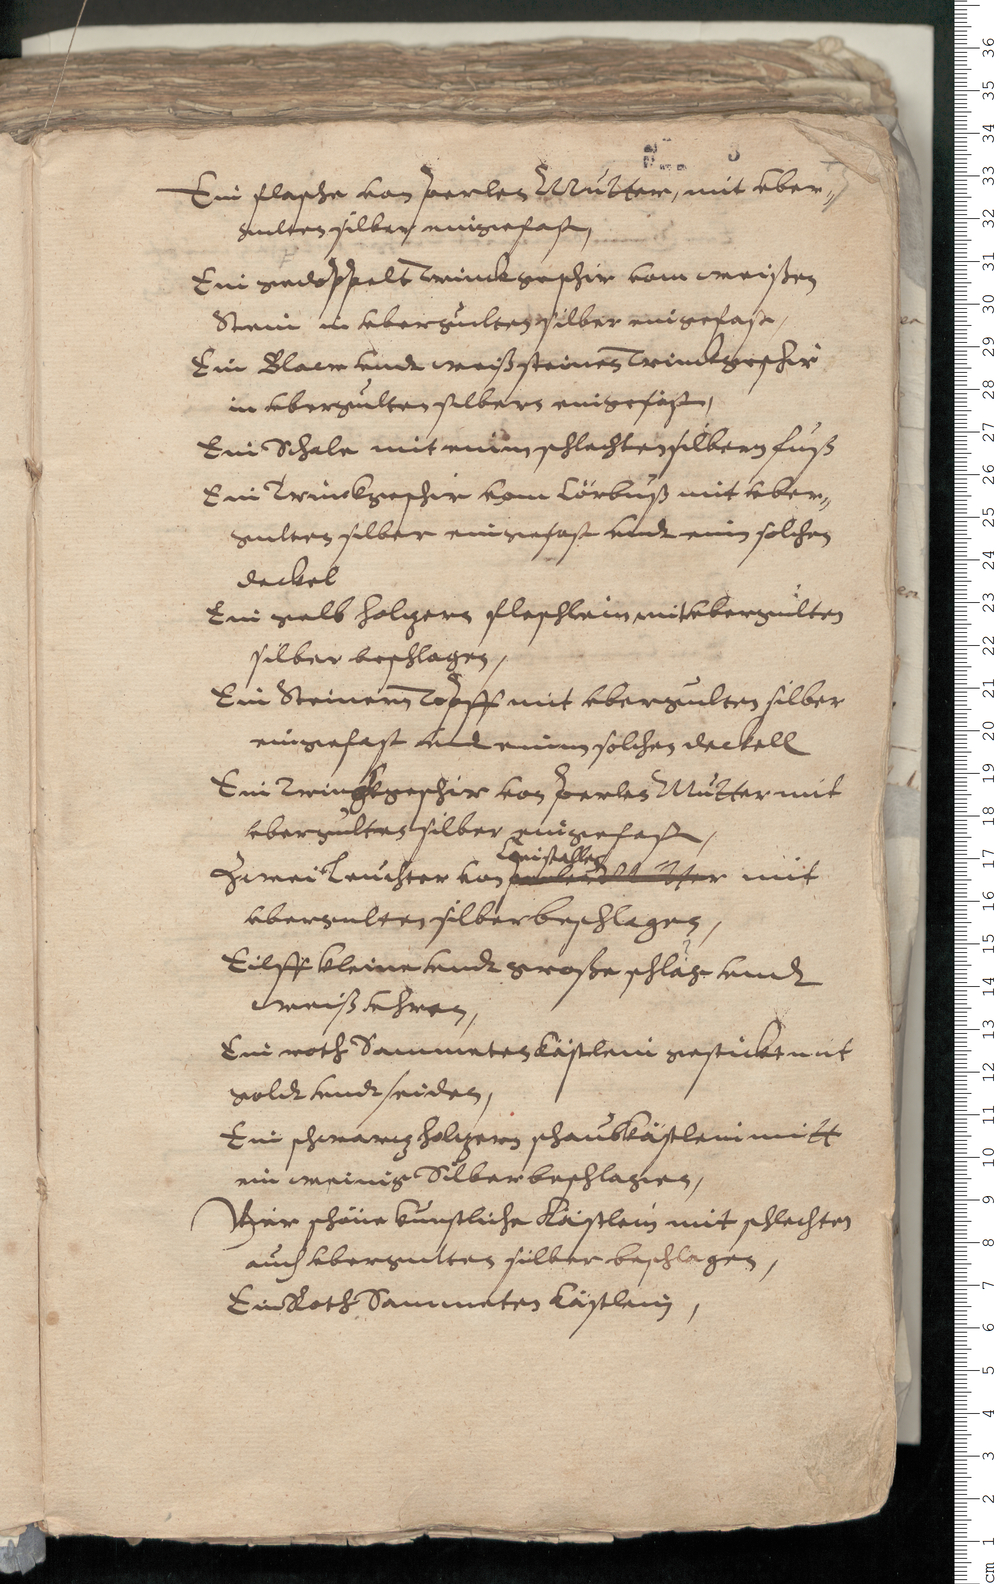 Ein flasche von perlen Mutter, mit vber,,
gulten silber eingefast,
Ein gedoppelt Trinckgeschir vom weißen
Stein in vbergulten silber eingefast,
Ein Blaw vndt weiß steinen Trinckgeschir
in vbergulten silbern eingefast,
Ein Schale mit einim schlechten silbern fuß
Ein Trinckgeschir vom Cörbuß mit vber,,
gulten silber eingefast vndt ein solchen
deckel
Ein gelb holtzern fleschlein mit vbergulten
silber beschlagen,
Ein Steinern Topff mit vbergulten silber
eingefast vnd einim solchen deckell
Ein Trinckgeschir von perlen Mutter mit
vbergulten silber eingefast,
Cristallen
Zwei Leuchter von perlen Mutter mit
vbergulten silber beschlagen,
Eilff kleine vndt große schlag vndt
weiß vhren,
Ein roth Sammeten Kästlein gestickt mit
goldt vndt seiden,
Ein schwartz holtzern schaubkästlein mitt
ein weinig Silber beschlagen,
Vier schöne kunstliche Kästlein mit schlechten
auch vbergulten silber beschlagen,
Ein Roth Sammeten Kästlein,
36
35
34
33
32
31
30
29
28
27
26
25
24
23
22
21
20
19
18
17
16
15
14
13
12
11
10
9
8
7
6
5
4
3
2
1
cm